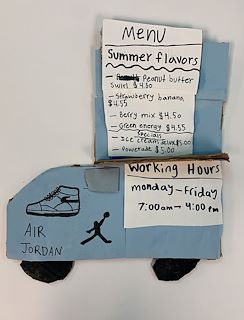 Menu
Summer flavors
- Peanut butter
Swirl $4.50
- Strawberry banana
$4.55
- Berry mix $4.50
- Green energy $4.55
Specials
- Ice cream
- Powerade $5.00
Working Hours
monday - Friday
7:00am → 4:00 pm
AIR
JORDAN